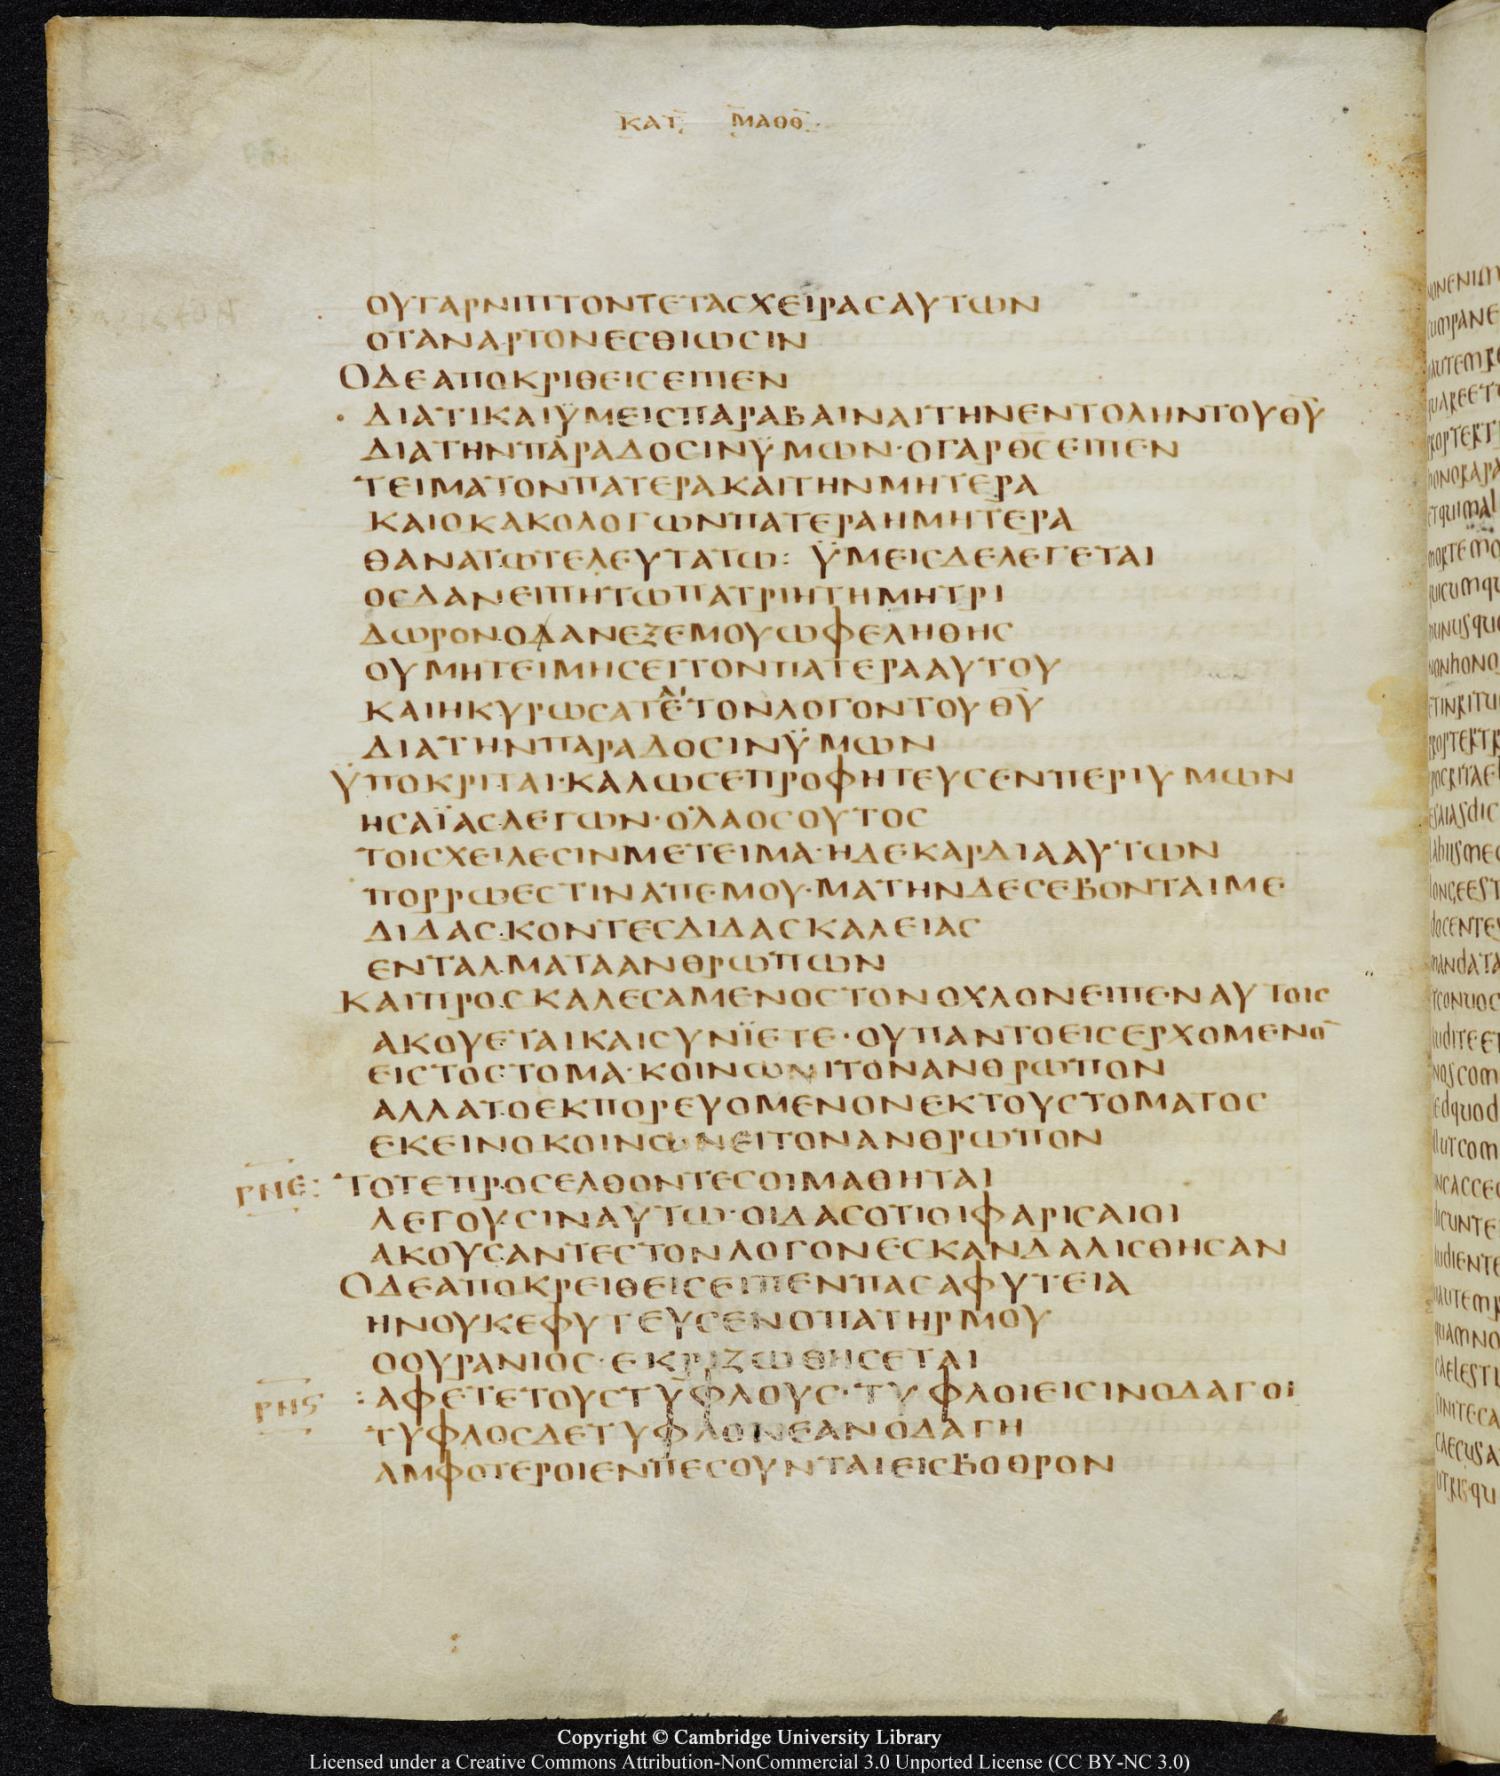 ΚΑΤ ΜΑΘΘ
ΟΥΓΑΡΝΙΠΤΟΝΤΕΤΑСΧΕΙΡΑСΑΥΤΩΝ
ΟΤΑΝΑΡΤΟΝΕСΘΙΩСΙΝ
ΟΔΕΑΠΟΚΡΙΘΕΙСΕΙΠΕΝ
ΔΙΑΤΙΚΑΙΫΜΕΙСΠΑΡΑΒΑΙΝΑΙΤΗΝΕΝΤΟΛΗΝΤΟΥΘΥ
ΔΙΑΤΗΝΠΑΡΑΔΟСΙΝΫΜΩΝ·ΟΓΑΡΘСΕΙΠΕΝ
ΤΕΙΜΑΤΟΝΠΑΤΕΡΑΚΑΙΤΗΝΜΗΤΕΡΑ
ΚΑΙΟΚΑΚΟΛΟΓΩΝΠΑΤΕΡΑΗΜΗΤΕΡΑ
ΘΑΝΑΤΩΤΕΛΕΥΤΑΤΩ: ΫΜΕΙСΔΕΛΕΓΕΤΑΙ
ΟСΔΑΝΕΙΠΗΤΩΠΑΤΡΙΗΤΗΜΗΤΡΙ
ΔΩΡΟΝΟΔΑΝΕΞΕΜΟΥΩΦΕΛΗΘΗС
ΟΥΜΗΤΕΙΜΗСΕΙΤΟΝΠΑΤΕΡΑΑΥΤΟΥ
ΚΑΙΗΚΥΡΩСΑΤΕΤΟΝΛΟΓΟΝΤΟΥΘΥ
ΔΙΑΤΗΝΠΑΡΑΔΟСΙΝΫΜΩΝ
ΫΠΟΚΡΙΤΑΙ·ΚΑΛΩСΕΠΡΟΦΗΤΕΥСΕΝΠΕΡΙΥΜΩΝ
ΗСΑΪΑСΛΕΓΩΝ·ΟΛΑΟСΟΥΤΟС
ΤΟΙСΧΕΙΛΕСΙΝΜΕΤΕΙΜΑ·ΗΔΕΚΑΡΔΙΑΑΥΤΩΝ
ΠΟΡΡΩΕСΤΙΝΑΠΕΜΟΥ·ΜΑΤΗΝΔΕСΕΒΟΝΤΑΙΜΕ
ΔΙΔΑСΚΟΝΤΕСΔΙΔΑСΚΑΛΕΙΑС
ΕΝΤΑΛΜΑΤΑΑΝΘΡΩΠΩΝ
ΚΑΙΠΡΟСΚΑΛΕСΑΜΕΝΟСΤΟΝΟΧΛΟΝΕΙΠΕΝΑΥΤΟΙС
ΑΚΟΥΕΤΑΙΚΑΙСΥΝΪΕΤΕ·ΟΥΠΑΝΤΟΕΙСΕΡΧΟΜΕΝΟ̅
ΕΙСΤΟСΤΟΜΑ·ΚΟΙΝΩΝΙΤΟΝΑΝΘΡΩΠΟΝ
ΑΛΛΑΤΟΕΚΠΟΡΕΥΟΜΕΝΟΝΕΚΤΟΥСΤΟΜΑΤΟС
ΕΚΕΙΝΟΚΟΙΝΩΝΕΙΤΟΝΑΝΘΡΩΠΟΝ
ΡΝΕ: ΤΟΤΕΠΡΟСΕΛΘΟΝΤΕСΟΙΜΑΘΗΤΑΙ
ΛΕΓΟΥСΙΝΑΥΤΩ·ΟΙΔΑСΟΤΙΟΙΦΑΡΙСΑΙΟΙ
ΑΚΟΥСΑΝΤΕСΤΟΝΛΟΓΟΝΕСΚΑΝΔΑΛΙСΘΗСΑΝ
ΟΔΕΑΠΟΚΡΕΙΘΕΙСΕΙΠΕΝΠΑСΑΦΥΤΕΙΑ
ΗΝΟΥΚΕΦΥΤΕΥСΕΝΟΠΑΤΗΡΜΟΥ
ΟΟΥΡΑΝΙΟС·ΕΚΡΙΖΩΘΗСΕΤΑΙ
ΡΝϚ :ΑΦΕΤΕΤΟΥСΤΥΦΛΟΥС·ΤΥΦΛΟΙΕΙСΙΝΟΔΑΓΟΙ
ΤΥΦΛΟСΔΕΤΥΦΛΟΝΕΑΝΟΔΑΓΗ
ΑΜΦΟΤΕΡΟΙΕΝΠΕСΟΥΝΤΑΙΕΙСΒΟΘΡΟΝ
Copyright © Cambridge University Library
Licensed under a Creative Commons Attribution-NonCommercial 3.0 Unported License (CC BY-NC 3.0)